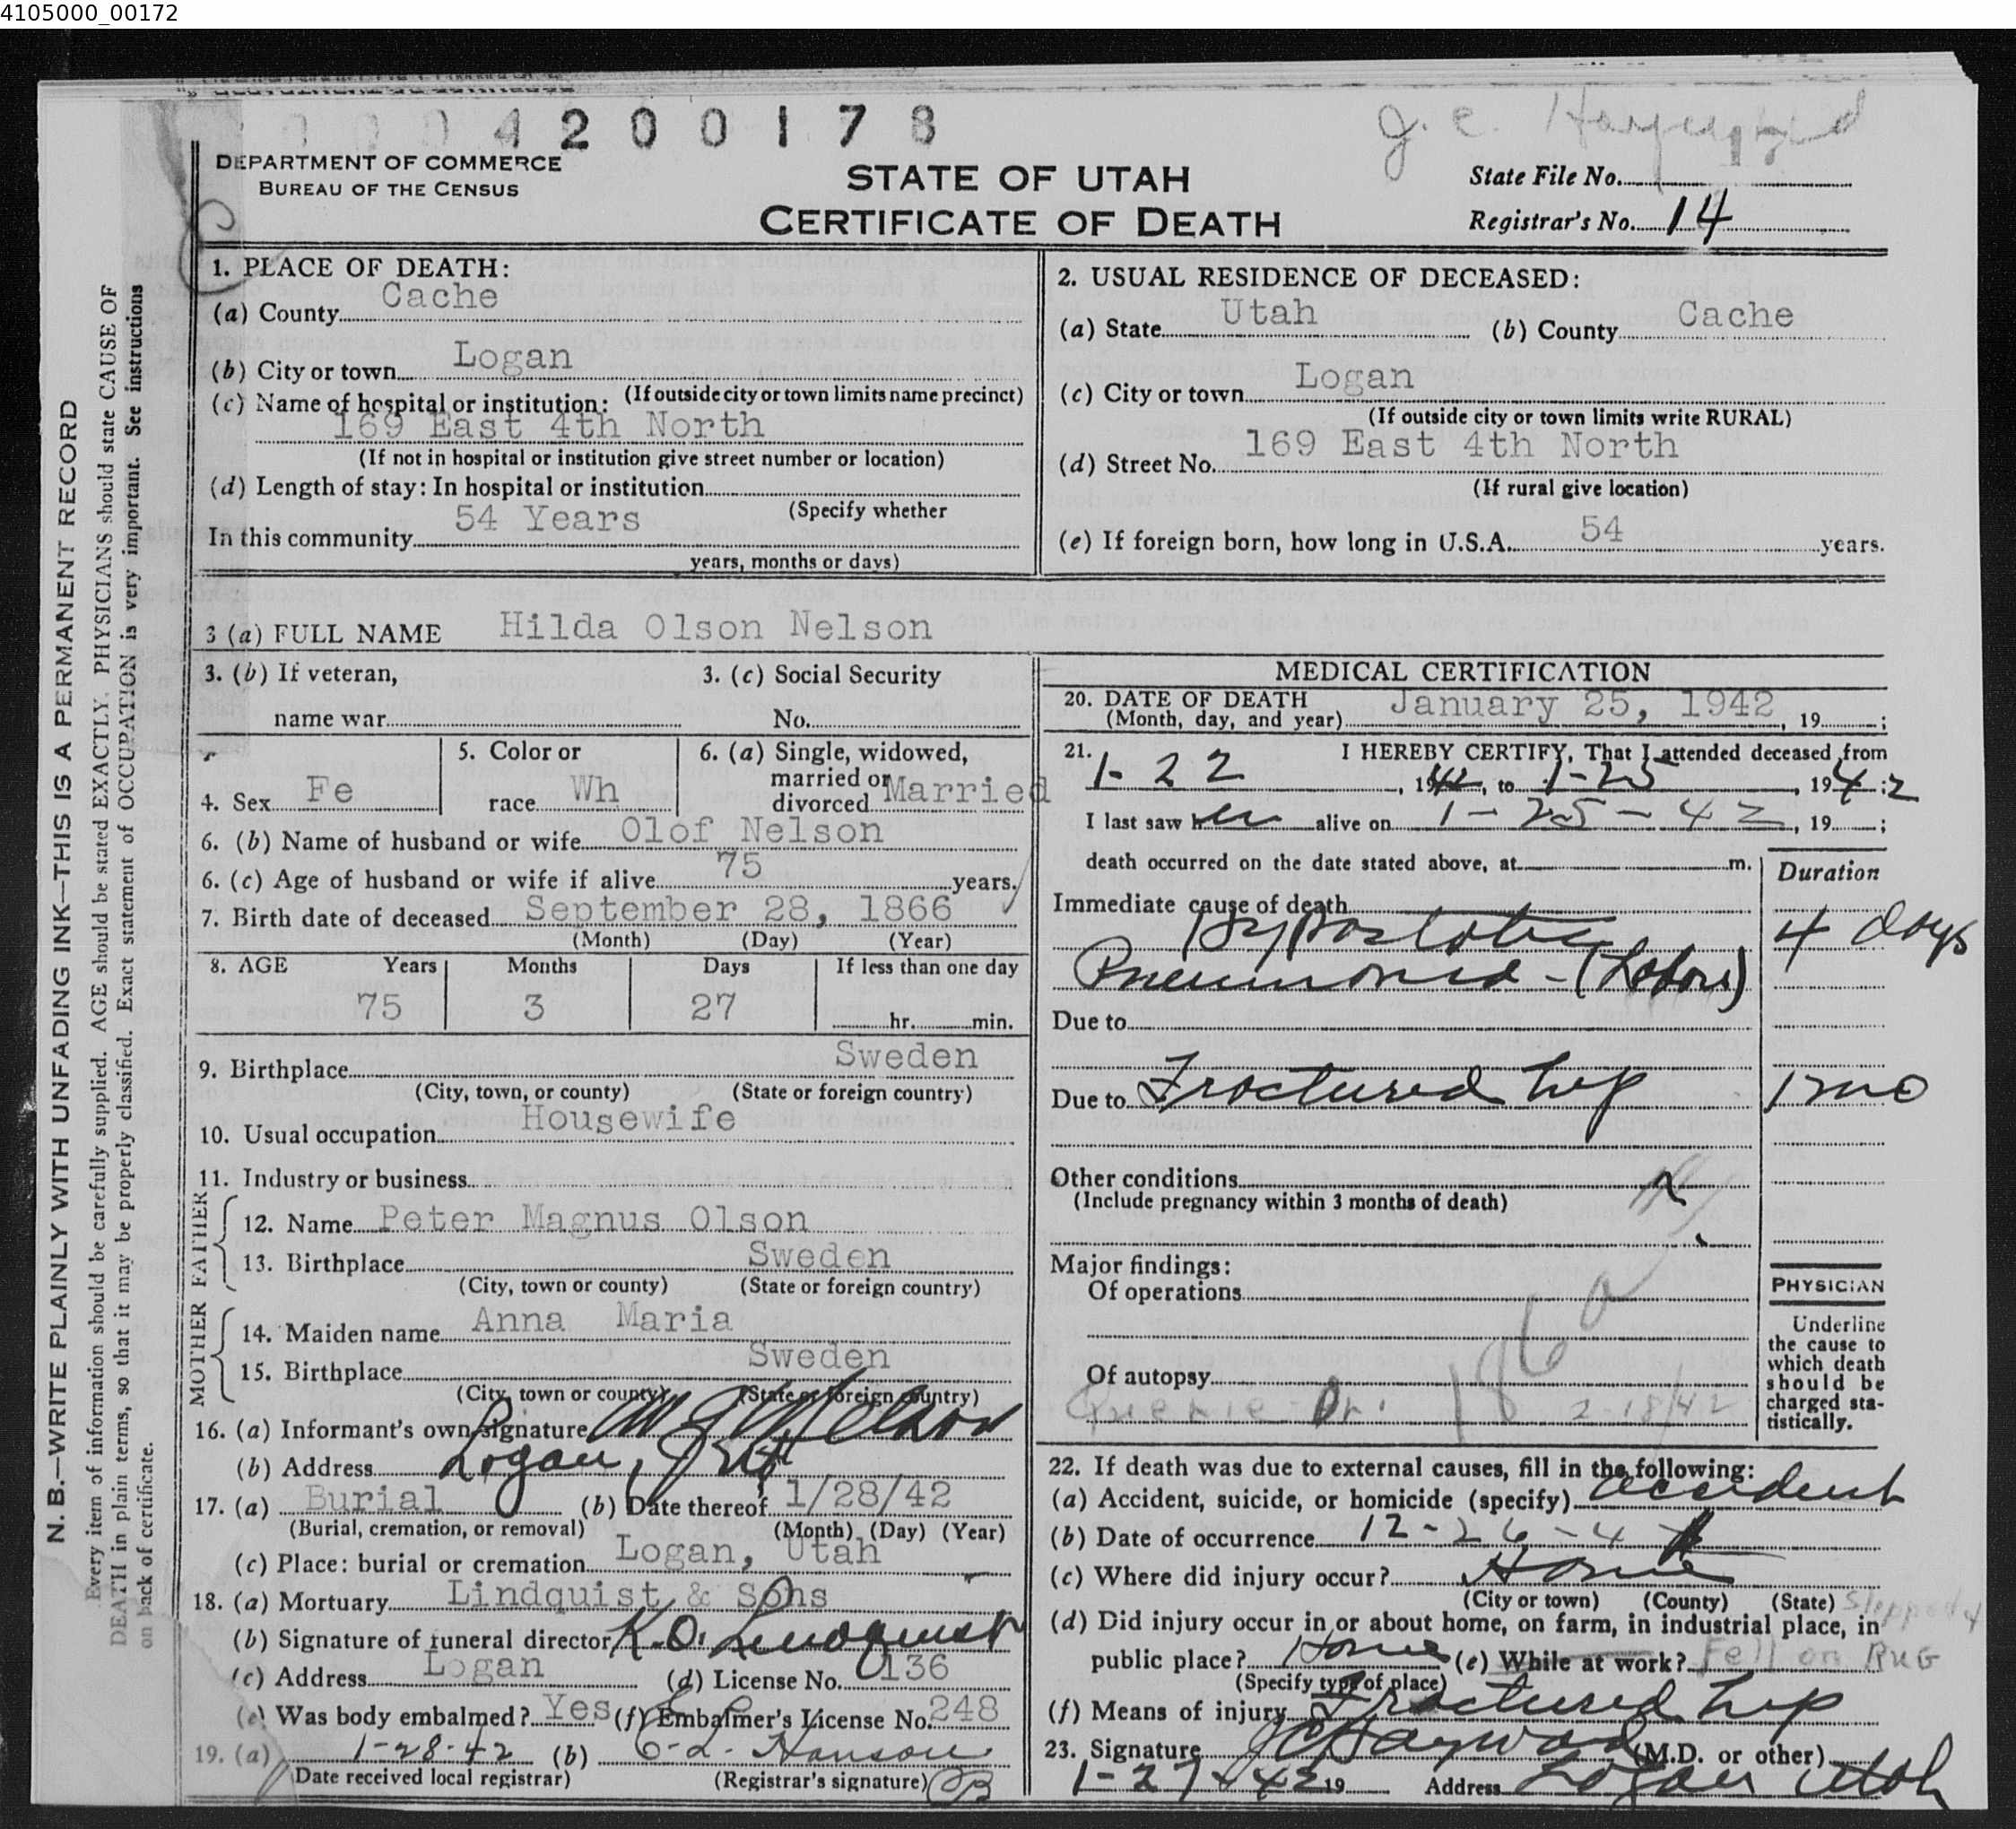 4105000_00172
0004200178
J. C. Hayward
DEPARTMENT OF COMMERCE
BUREAU OF THE CENSUS
STATE OF UTAH
CERTIFICATE OF DEATH
State File No.
Registrar's No. 14
N. B.—WRITE PLAINLY WITH UNFADING INK—THIS IS A PERMANENT RECORD
Every item of information should be carefully supplied. AGE should be stated EXACTLY. PHYSICIANS should state CAUSE OF
DEATH in plain terms, so that it may be properly classified. Exact statement of OCCUPATION is very important. See instructions
on back of certificate.
1. PLACE OF DEATH:
(a) County Cache
(b) City or town Logan
(If outside city or town limits name precinct)
(c) Name of hospital or institution:
169 East 4th North
(If not in hospital or institution give street number or location)
(d) Length of stay: In hospital or institution
(Specify whether
In this community 54 Years
years, months or days)
2. USUAL RESIDENCE OF DECEASED:
(a) State Utah (b) County Cache
(c) City or town Logan
(If outside city or town limits write RURAL)
(d) Street No. 169 East 4th North
(If rural give location)
(e) If foreign born, how long in U.S.A. 54 years.
3 (a) FULL NAME Hilda Olson Nelson
3. (b) If veteran,
name war
3. (c) Social Security
No.
4. Sex Fe
5. Color or
race Wh
6. (a) Single, widowed,
married or
divorced Married
6. (b) Name of husband or wife Olof Nelson
6. (c) Age of husband or wife if alive 75 years.
7. Birth date of deceased September 28, 1866
(Month) (Day) (Year)
8. AGE Years Months Days If less than one day
75 3 27 hr. min.
9. Birthplace Sweden
(City, town, or county) (State or foreign country)
10. Usual occupation Housewife
11. Industry or business
FATHER
12. Name Peter Magnus Olson
13. Birthplace Sweden
(City, town or county) (State or foreign country)
MOTHER
14. Maiden name Anna Maria
15. Birthplace Sweden
(City, town or county) (State or foreign country)
16. (a) Informant's own signature Nelson
(b) Address Logan, Utah
17. (a) Burial (b) Date thereof 1/28/42
(Burial, cremation, or removal) (Month) (Day) (Year)
(c) Place: burial or cremation Logan, Utah
18. (a) Mortuary Lindquist & Sons
(b) Signature of funeral director K. O. Lindquist
(c) Address Logan (d) License No. 136
(e) Was body embalmed? Yes (f) Embalmer's License No. 248
19. (a) 1-28-42 (b) C. L. Hanson
(Date received local registrar) (Registrar's signature)
MEDICAL CERTIFICATION
20. DATE OF DEATH
(Month, day, and year) January 25, 1942, 19 ;
21. I HEREBY CERTIFY, That I attended deceased from
1-22, 1942, to 1-25, 1942;
I last saw her alive on 1-25-42, 19 ;
death occurred on the date stated above, at m.
Duration
Immediate cause of death
Hypostatic 4 days
Pneumonia - (Lobar)
Due to
Due to Fractured hip 1 mo
Other conditions
(Include pregnancy within 3 months of death)
Major findings:
Of operations
Of autopsy
186 a
Querie Dr. 2-18/42
PHYSICIAN
Underline
the cause to
which death
should be
charged sta-
tistically.
22. If death was due to external causes, fill in the following:
(a) Accident, suicide, or homicide (specify) accident
(b) Date of occurrence 12-26-41
(c) Where did injury occur? Home
(City or town) (County) (State)
(d) Did injury occur in or about home, on farm, in industrial place, in
public place? Home (e) While at work? Slipped & Fell on RUG
(Specify type of place)
(f) Means of injury Fractured hip
23. Signature J C Hayward (M.D. or other)
1-27-42 19 Address Logan Utah